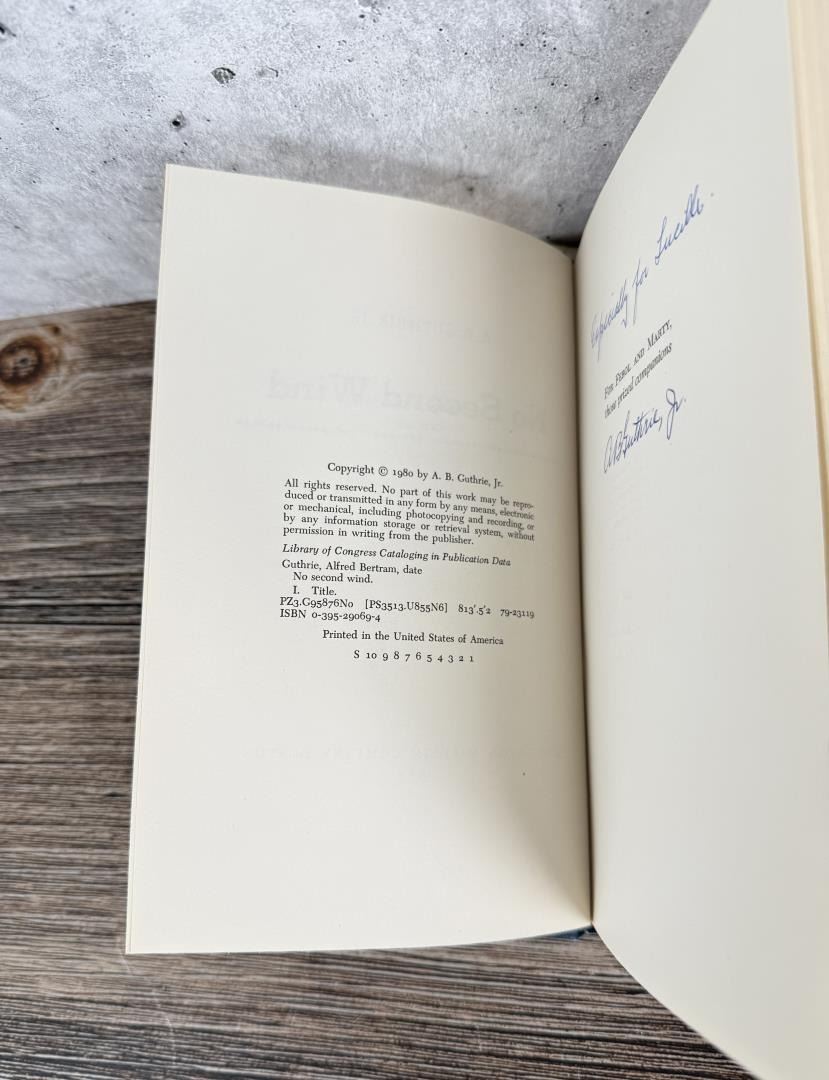 Copyright © 1980 by A. B. Guthrie, Jr.
All rights reserved. No part of this work may be repro-
duced or transmitted in any form by any means, electronic
or mechanical, including photocopying and recording, or
by any information storage or retrieval system, without
permission in writing from the publisher.
Library of Congress Cataloging in Publication Data
Guthrie, Alfred Bertram, date
No second wind.
I. Title.
PZ3.G95876No [PS3513.U855N6] 813'.5'2 79-23119
ISBN 0-395-29069-4
Printed in the United States of America
S 10 9 8 7 6 5 4 3 2 1
Especially for Lucille.
For Ferol and Marty,
those prized companions
A B Guthrie, Jr.